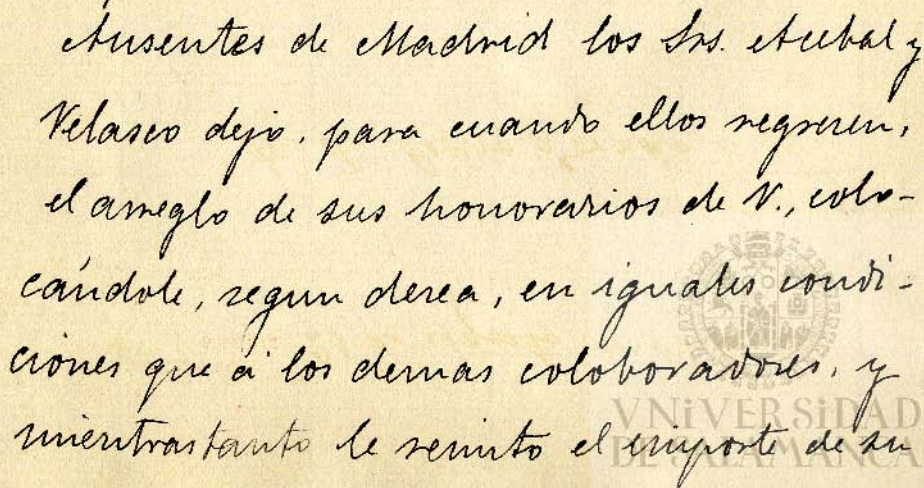 Ausentes de Madrid los Srs. Acebal y
Velasco dejo, para cuando ellos regresen,
el arreglo de sus honorarios de V., colo-
cándole, segun desea, en iguales condi-
ciones que á los demas coloboradores, y
mientrastanto le remito el importe de su
VNiVERSiDAD
DE SALAMANCA